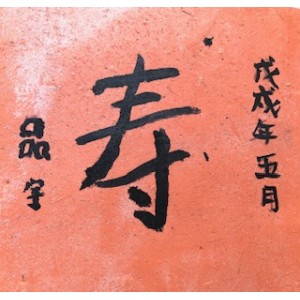 戊戌年五月
寿
品宇